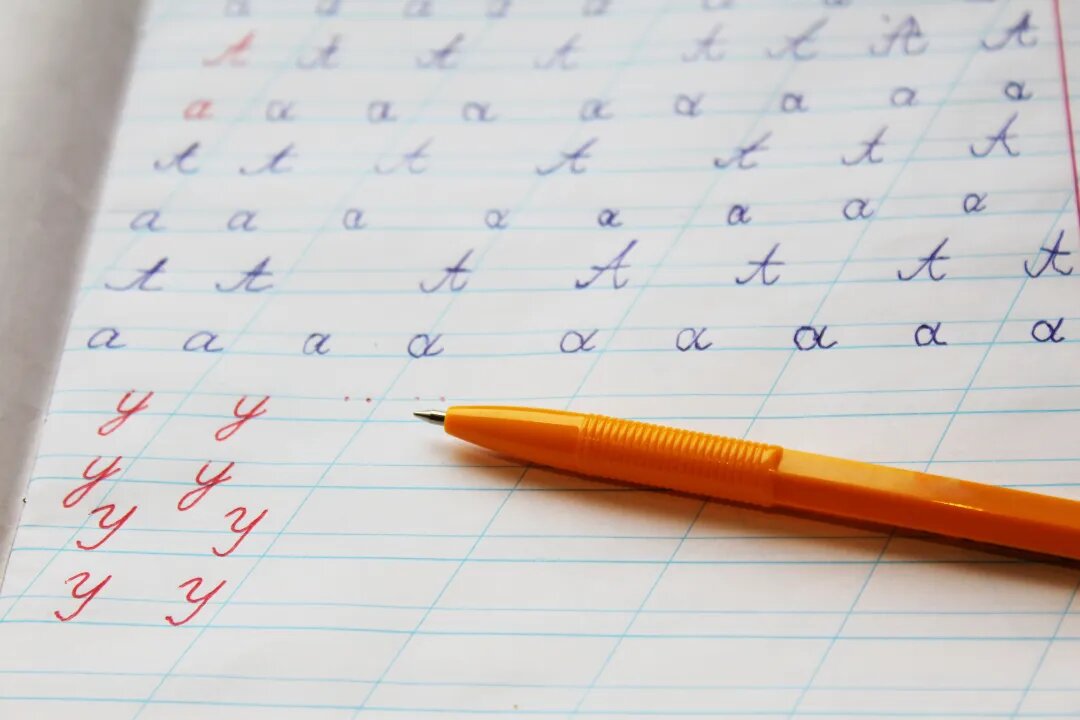 а а а а а а а
А А А А А А А А
а а а а а а а а а
А А А А А А А
а а а а а а а а
А А А А А А А
а а а а а а а а а
у у
у у
У У
У У